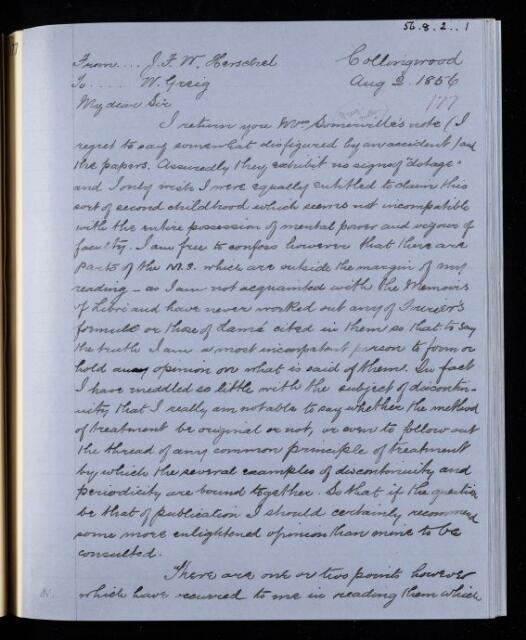 56.8.2..1
From.... J. F. W. Herschel Collingwood
To..... W. Greig Aug 2 1856
177
My dear Sir
I return you Mrs Somerville's note (I
regret to say somewhat disfigured by an accident) and
the papers. Assuredly they exhibit no signs of "dotage"
and I only wish I were equally entitled to claim this
sort of second childhood which seems not incompatible
with the entire possession of mental power and vigour of
faculty. I am free to confess however that there are
parts of the M.S. which are outside the margin of my
reading – as I am not acquainted with the Memoirs
of Libri and have never worked out any of Fourier's
formulæ or those of Lamé cited in them so that to say
the truth I am a most incompetent person to form or
hold any opinion on what is said of them. In fact
I have meddled so little with the subject of discontin-
uity that I really am not able to say whether the method
of treatment be original or not, or even to follow out
the thread of any common principle of treatment
by which the several examples of discontinuity and
periodicity are bound together. So that if the question
be that of publication I should certainly recommend
some more enlightened opinion than mine to be
consulted.
There are one or two points however
which have occurred to me in reading them which